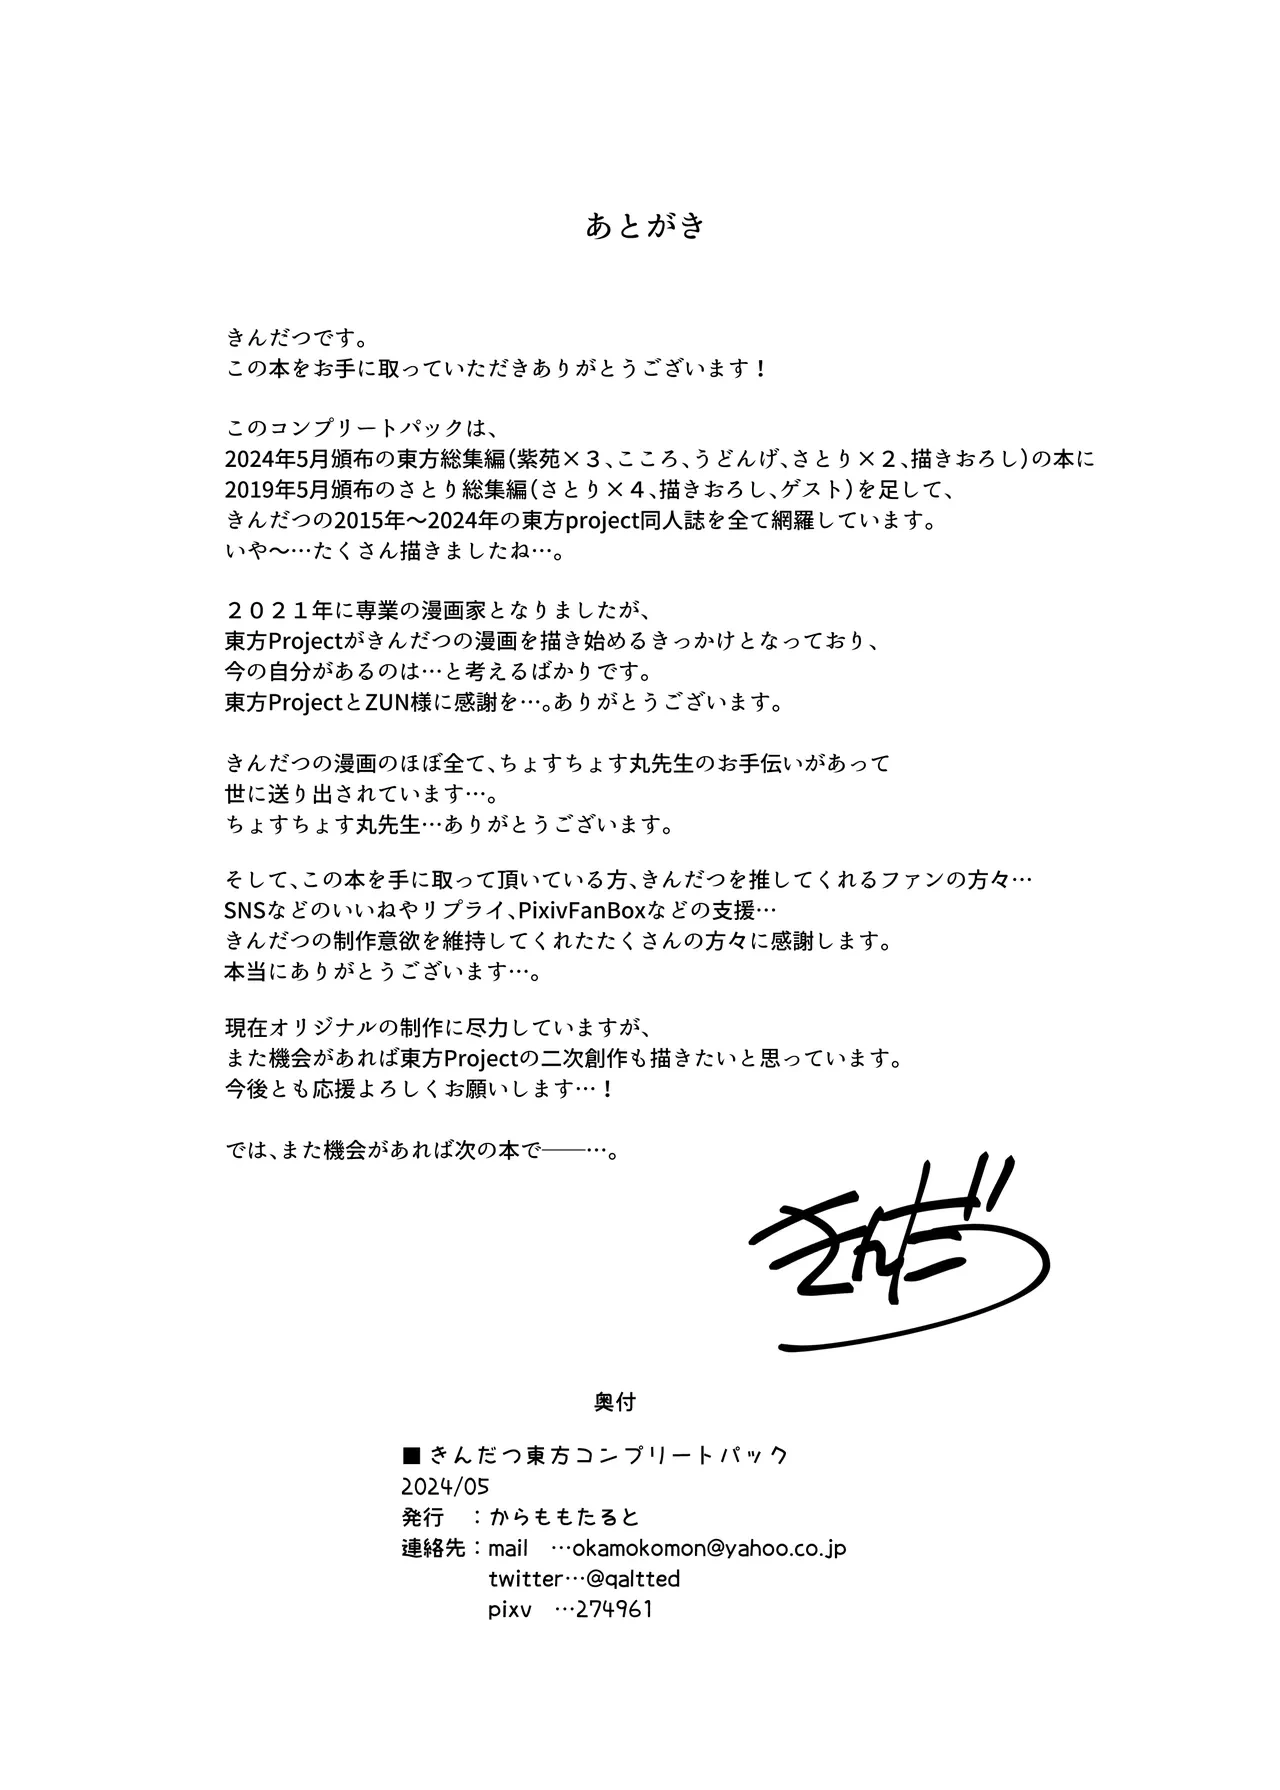 あとがき
きんだつです。
この本をお手に取っていただきありがとうございます！
このコンプリートパックは、
2024年5月頒布の東方総集編（紫苑×３、こころ、うどんげ、さとり×２、描きおろし）の本に
2019年5月頒布のさとり総集編（さとり×４、描きおろし、ゲスト）を足して、
きんだつの2015年～2024年の東方project同人誌を全て網羅しています。
いや～…たくさん描きましたね…。
２０２１年に専業の漫画家となりましたが、
東方Projectがきんだつの漫画を描き始めるきっかけとなっており、
今の自分があるのは…と考えるばかりです。
東方ProjectとZUN様に感謝を…。ありがとうございます。
きんだつの漫画のほぼ全て、ちょすちょす丸先生のお手伝いがあって
世に送り出されています…。
ちょすちょす丸先生…ありがとうございます。
そして、この本を手に取って頂いている方、きんだつを推してくれるファンの方々…
SNSなどのいいねやリプライ、PixivFanBoxなどの支援…
きんだつの制作意欲を維持してくれたたくさんの方々に感謝します。
本当にありがとうございます…。
現在オリジナルの制作に尽力していますが、
また機会があれば東方Projectの二次創作も描きたいと思っています。
今後とも応援よろしくお願いします…！
では、また機会があれば次の本で――…。
きんだつ
奥付
■きんだつ東方コンプリートパック
2024/05
発行　：からももたると
連絡先：mail　…okamokomon@yahoo.co.jp
twitter…@qaltted
pixv　…274961